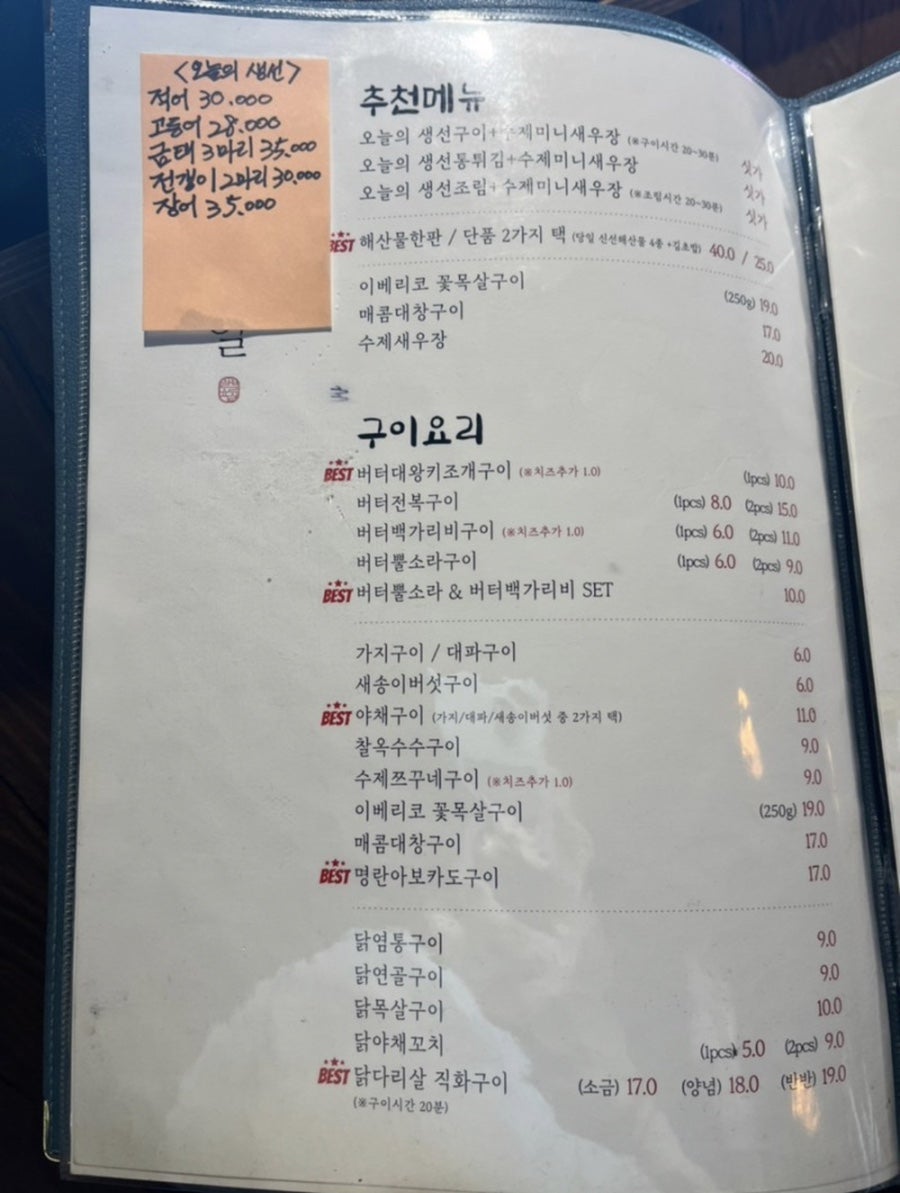 <오늘의 생선>
적어 30.000
고등어 28.000
금태 3마리 35.000
전갱이 2마리 30.000
장어 35.000
일
추천메뉴
오늘의 생선구이+수제미니새우장 (※구이시간 20~30분) 싯가
오늘의 생선통튀김+수제미니새우장 싯가
오늘의 생선조림+수제미니새우장 (※조림시간 20~30분) 싯가
BEST 해산물한판 / 단품 2가지 택 (당일 신선해산물 4종 +김초밥) 40.0 / 25.0
이베리코 꽃목살구이 (250g) 19.0
매콤대창구이 17.0
수제새우장 20.0
구이요리
BEST 버터대왕키조개구이 (※치즈추가 1.0) (1pcs) 10.0
버터전복구이 (1pcs) 8.0 (2pcs) 15.0
버터백가리비구이 (※치즈추가 1.0) (1pcs) 6.0 (2pcs) 11.0
버터뿔소라구이 (1pcs) 6.0 (2pcs) 9.0
BEST 버터뿔소라 & 버터백가리비 SET 10.0
가지구이 / 대파구이 6.0
새송이버섯구이 6.0
BEST 야채구이 (가지/대파/새송이버섯 중 2가지 택) 11.0
찰옥수수구이 9.0
수제쯔꾸네구이 (※치즈추가 1.0) 9.0
이베리코 꽃목살구이 (250g) 19.0
매콤대창구이 17.0
BEST 명란아보카도구이 17.0
닭염통구이 9.0
닭연골구이 9.0
닭목살구이 10.0
닭야채꼬치 (1pcs) 5.0 (2pcs) 9.0
BEST 닭다리살 직화구이 (소금) 17.0 (양념) 18.0 (반반) 19.0
(※구이시간 20분)